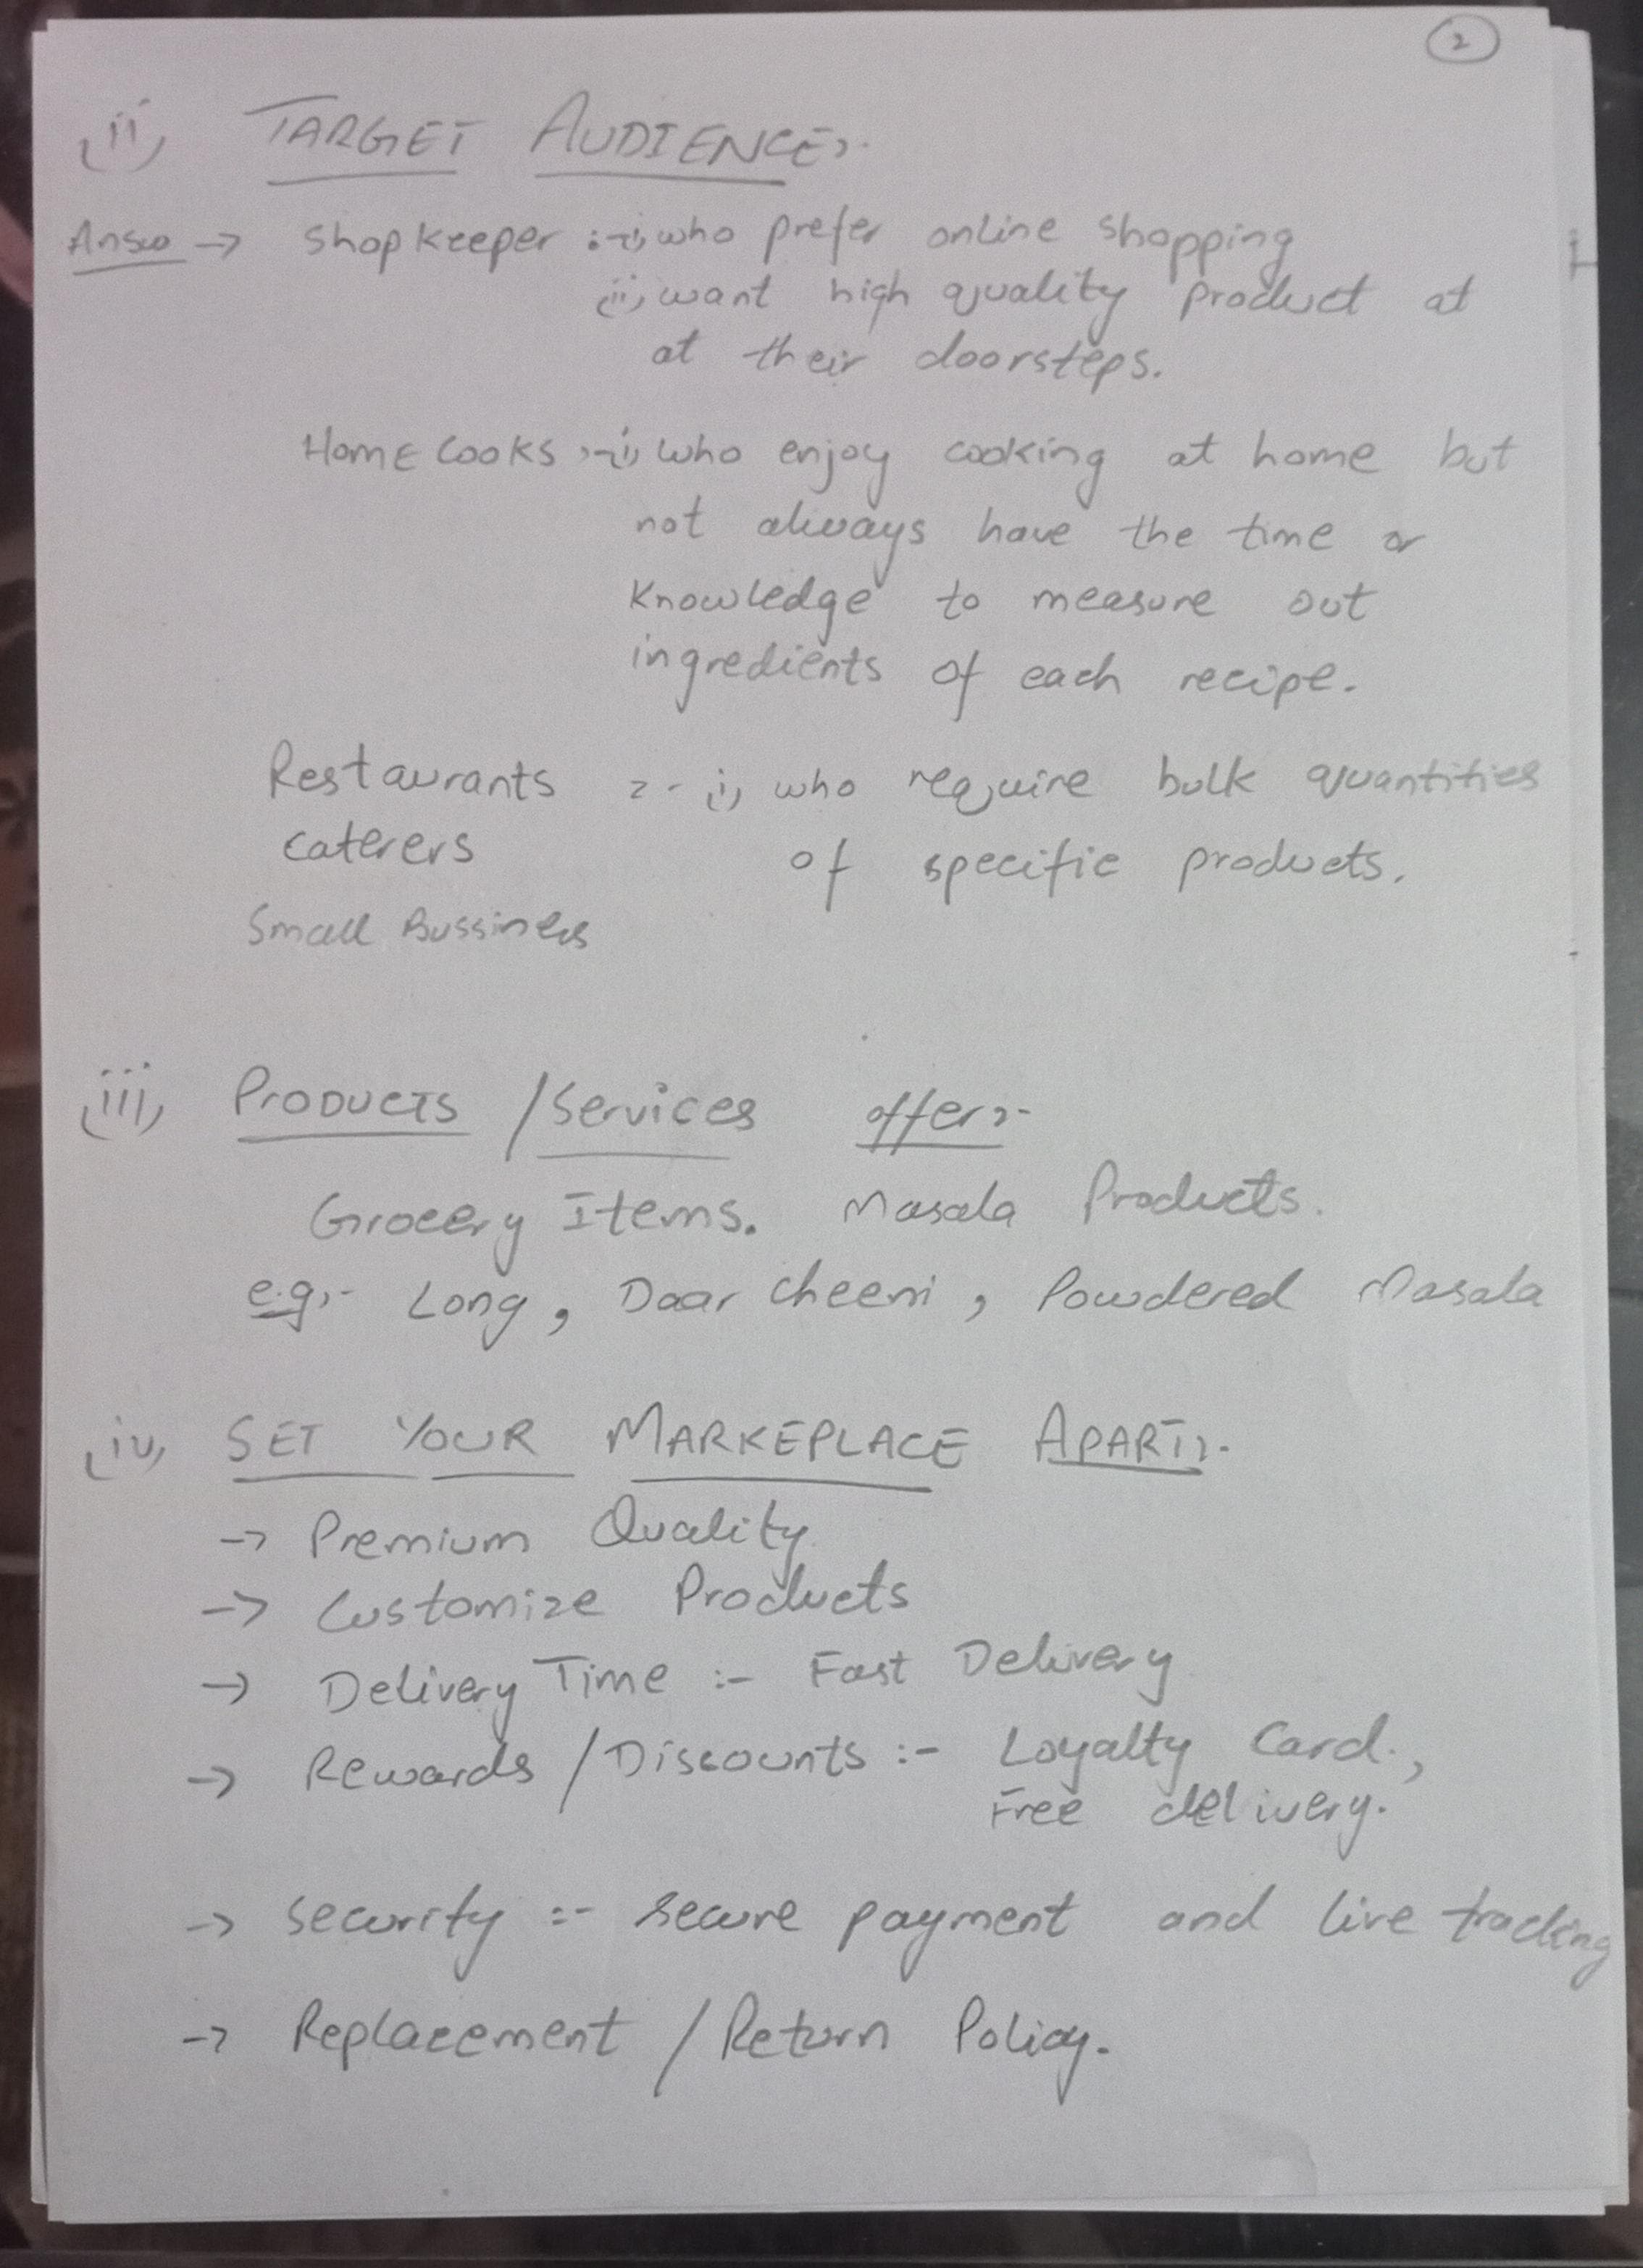 2
(ii) TARGET AUDIENCE:-
Answ → Shopkeeper :- (i) who prefer online shopping
(ii) want high quality product at
at their doorsteps.
Home Cooks :- (i) who enjoy cooking at home but
not always have the time or
knowledge to measure out
ingredients of each recipe.
Restaurants :- (i) who require bulk quantities
caterers of specific products.
Small Bussiness
(iii) PRODUCTS / Services offer:-
Grocery Items. Masala Products.
e.g:- Long, Daar cheeni, Powdered Masala
(iv) SET YOUR MARKEPLACE APART:-
→ Premium Quality
→ Customize Products
→ Delivery Time :- Fast Delivery
→ Rewards / Discounts :- Loyalty Card.,
Free delivery.
→ Security :- secure payment and live tracking
→ Replacement / Return Policy.